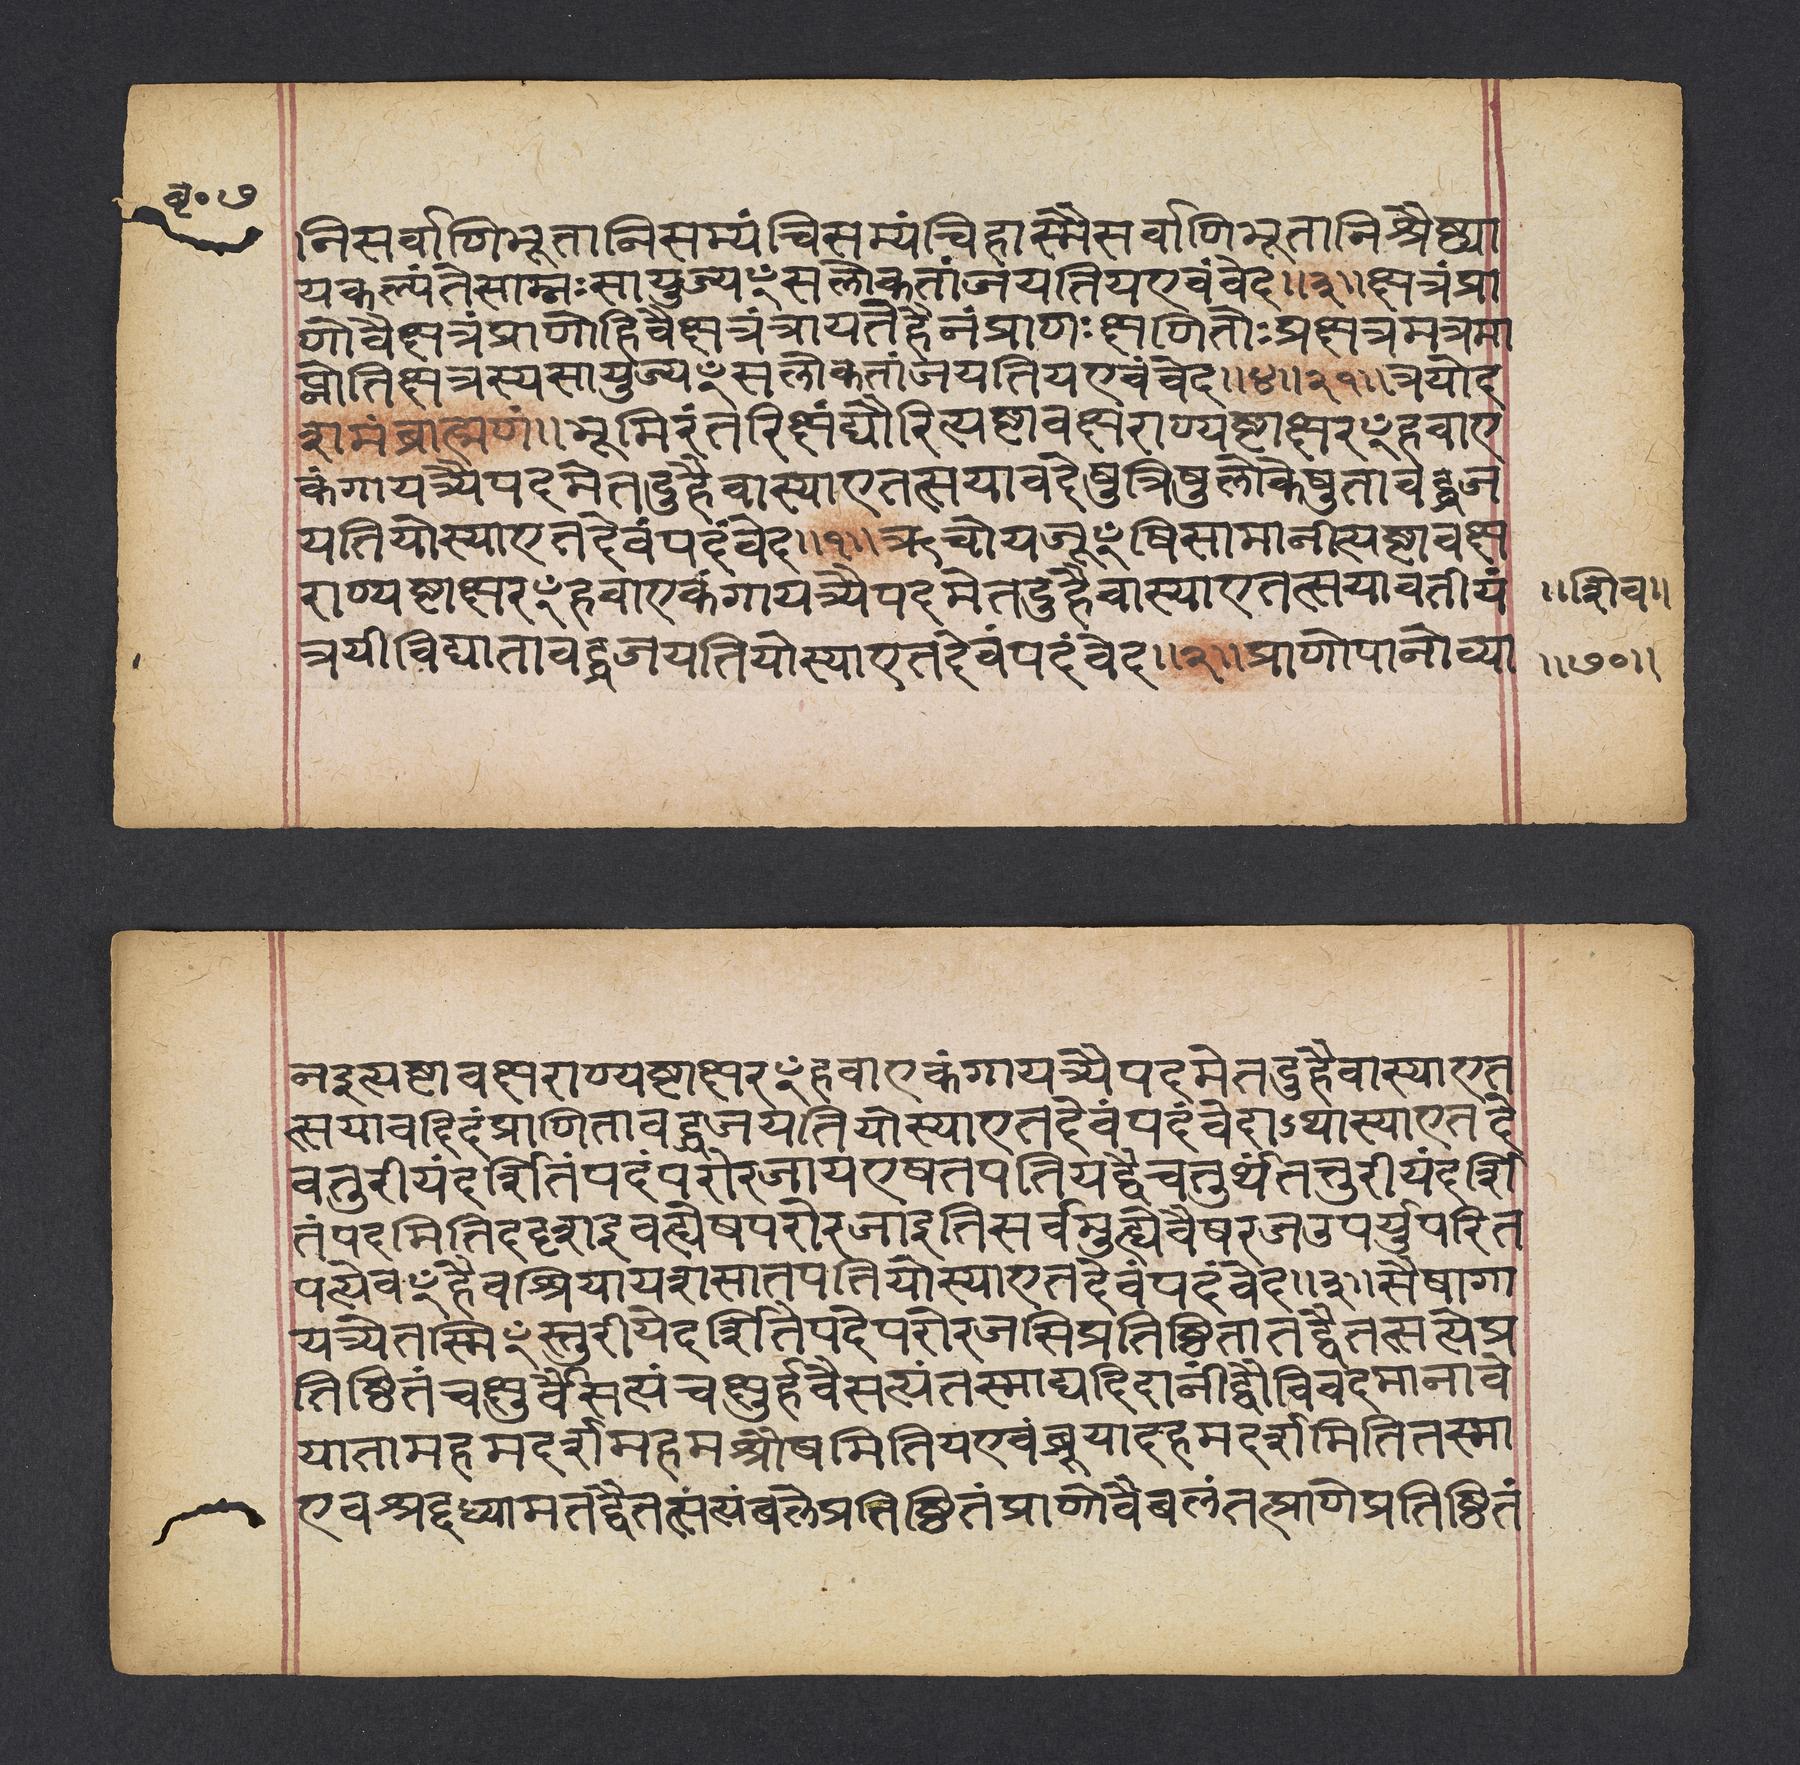 बृ॰ ७
निसर्वाणिभूतानिसम्यंचिसम्यंचिहास्मैसर्वाणिभूतानिश्रैष्ठ्या
यकल्पंतेसाम्नःसायुज्यꣳसलोकतांजयतियएवंवेद॥३॥क्षत्रंप्रा
णोवैक्षत्रंप्राणोहिवैक्षत्रंत्रायतेहैनंप्राणःक्षणितोःप्रक्षत्रमत्रमा
प्नोतिक्षत्रस्यसायुज्यꣳसलोकतांजयतियएवंवेद॥४॥२१॥त्रयोद
शमंब्राह्मणं॥भूमिरंतरिक्षंद्यौरित्यष्टावक्षराण्यष्टाक्षरꣳहवाए
कंगायत्र्यैपदमेतदुहैवास्याएतत्सयावदेषुत्रिषुलोकेषुतावद्धज
यतियोस्याएतदेवंपदंवेद॥१॥ऋचोयजूꣳषिसामानीत्यष्टावक्ष
राण्यष्टाक्षरꣳहवाएकंगायत्र्यैपदमेतदुहैवास्याएतत्सयावतीयं
॥शिव॥
त्रयीविद्यातावद्धजयतियोस्याएतदेवंपदंवेद॥२॥प्राणोपानोव्या
॥७०॥
नइत्यष्टावक्षराण्यष्टाक्षरꣳहवाएकंगायत्र्यैपदमेतदुहैवास्याएत
त्सयावदिदंप्राणितावद्धजयतियोस्याएतदेवंपदंवेदाऽथास्याएतदे
वतुरीयंदर्शितंपदंपरोरजायएषतपतियद्वैचतुर्थंतत्तुरीयंदर्शि
तंपदमितिददृशइवह्येषपरोरजाइतिसर्वमुह्येवैषरजउपर्युपरित
पत्येवꣳहैवश्रियायशसातपतियोस्याएतदेवंपदंवेद॥३॥सैषागा
यत्र्येतस्मिꣳस्तुरीयेदर्शितेपदेपरोरजसिप्रतिष्ठितातद्वैतत्सत्येप्र
तिष्ठितंचक्षुर्वैसत्यंचक्षुर्हवैसत्यंतस्माद्यदिदानींद्वौविवदमानावे
यातामहमदर्शमहमश्रौषमितियएवंब्रूयादहमदर्शमितितस्मा
एवश्रद्दध्यामतद्वैतत्सत्यंबलेप्रतिष्ठितंप्राणोवैबलंतत्प्राणेप्रतिष्ठितं